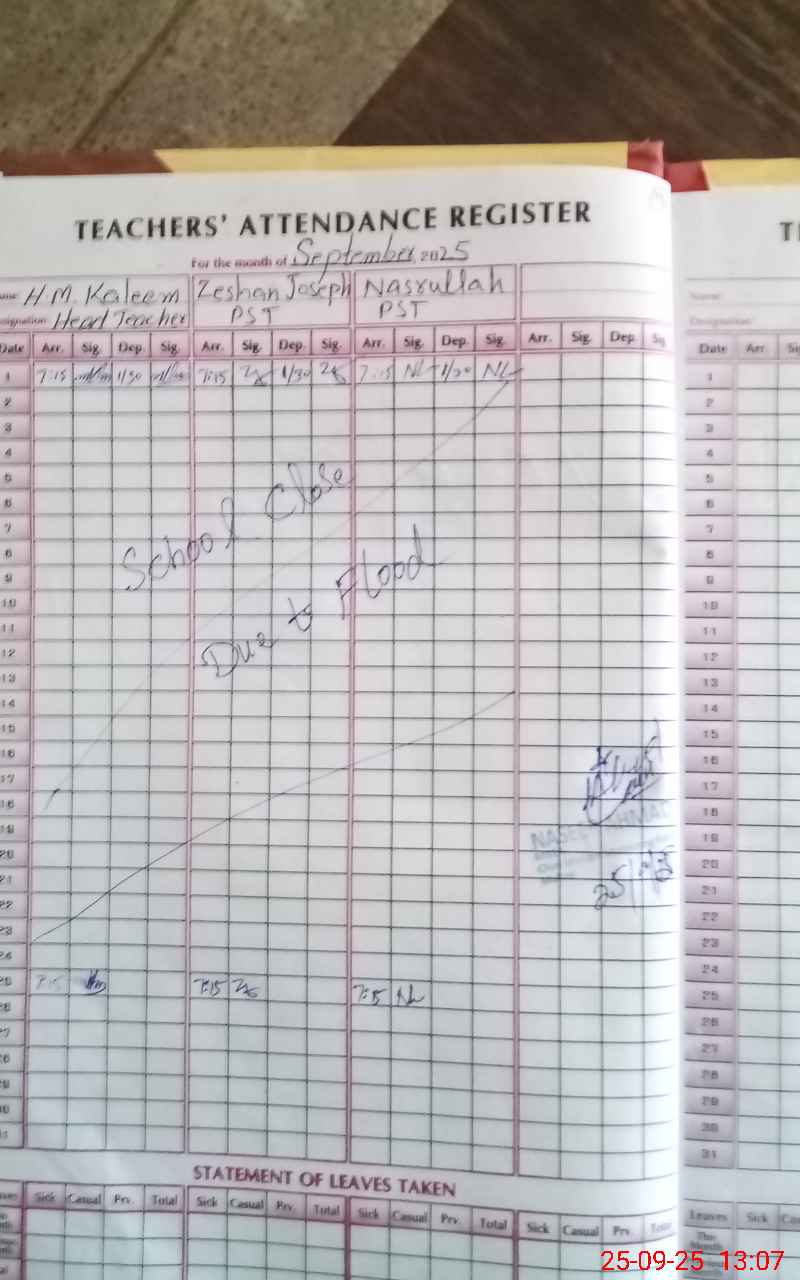 TEACHERS' ATTENDANCE REGISTER
For the month of September 2025
H.M. Kaleem Zeshan Joseph Nasrullah
Head Teacher PST PST
Date Arr. Sig. Dep. Sig. Arr. Sig. Dep. Sig. Arr. Sig. Dep. Sig. Arr. Sig. Dep.
1 7:15 1/30 7:15 1/30 7:15 NL 1/30 NL
2
3
4
5
6
7
8
9
10
11
12
13
14
15
16
17
18
19
20
21
22
23
24
25 7:15 7:15 7:15 NL
26
27
28
29
30
31
School Close
Due to Flood
STATEMENT OF LEAVES TAKEN
Sick Casual Prv. Total Sick Casual Prv. Total Sick Casual Prv. Total Sick Casual Prv. Total
Name
Designation
Date Arr
1
2
3
4
5
6
7
8
9
10
11
12
13
14
15
16
17
18
19
20
21
22
23
24
25
26
27
28
29
30
31
Leaves Sick
The Month
25-09-25 13:07